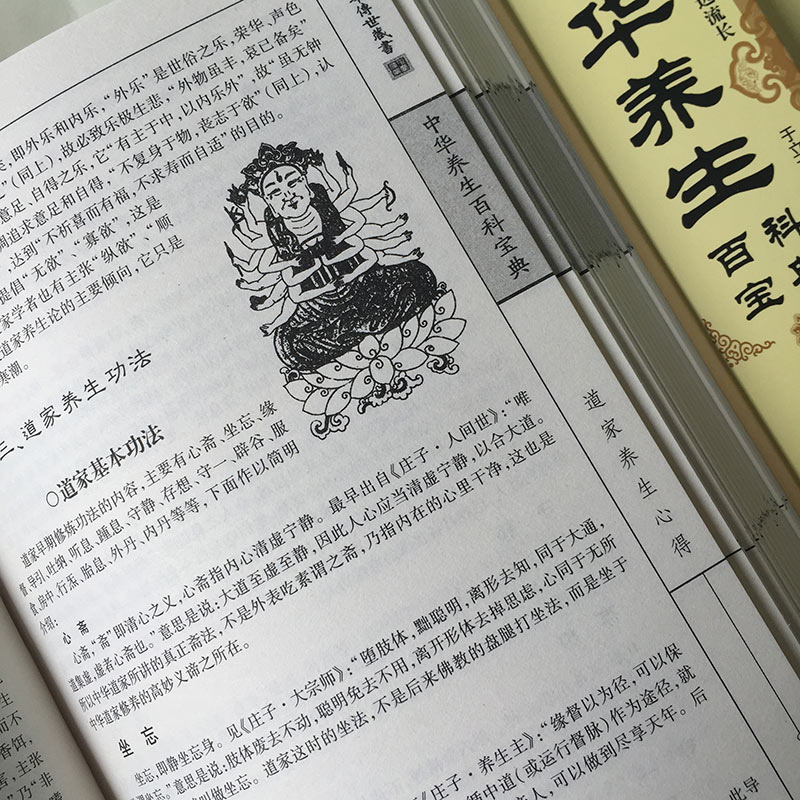 矣,即外乐和内乐,“外乐”是世俗之乐,荣华,声色
”(同上),故必致乐极生悲,“外物虽丰,哀已备矣”
意足、自得之乐,它“有主于中,以内乐外”,故“虽无钟
追求意足和自得,“不复身于物,丧志于欲”(同上),认
,达到“不祈喜而有福,不求寿而自适”的目的。
提倡“无欲”、“寡欲”,这是
家学者也有主张“纵欲”、“顺
道家养生论的主要倾向,它只是
寒潮。
三、道家养生功法
○道家基本功法
道家早期修炼功法的内容,主要有心斋、坐忘、缘
督、导引、吐纳、听息、踵息、守静、存想、守一、辟谷、服
食、房中、行炁、胎息、外丹、内丹等等,下面作以简明
介绍:
心斋
心斋,“斋”即清心之义,心斋指内心清虚宁静。最早出自《庄子·人间世》:“唯
道集虚,虚者心斋也。”意思是说:大道至虚至静,因此人心应当清虚宁静,以合大道。
所以中华道家所讲的真正斋法,不是外表吃素谓之斋,乃指内在的心里干净,这也是
中华道家修养的高妙义谛之所在。
坐忘
坐忘,即静坐忘身。见《庄子·大宗师》:“堕肢体,黜聪明,离形去知,同于大通,
谓坐忘。”意思是说:肢体废去不动,聪明免去不用,离开形体去掉思虑,心同于无所
叫做坐忘。道家这时的坐法,不是后来佛教的盘腿打坐法,而是坐于
《庄子·养生主》:“缘督以为径,可以保
循中道(或运行督脉)作为途径,就
恋人,可以做到尽享天年。后
此导
传世藏书
中华养生百科宝典
道家养生心得
华养生
百科
宝典
流长
于立
生
而不
香饵,
害,主张
”乃“非